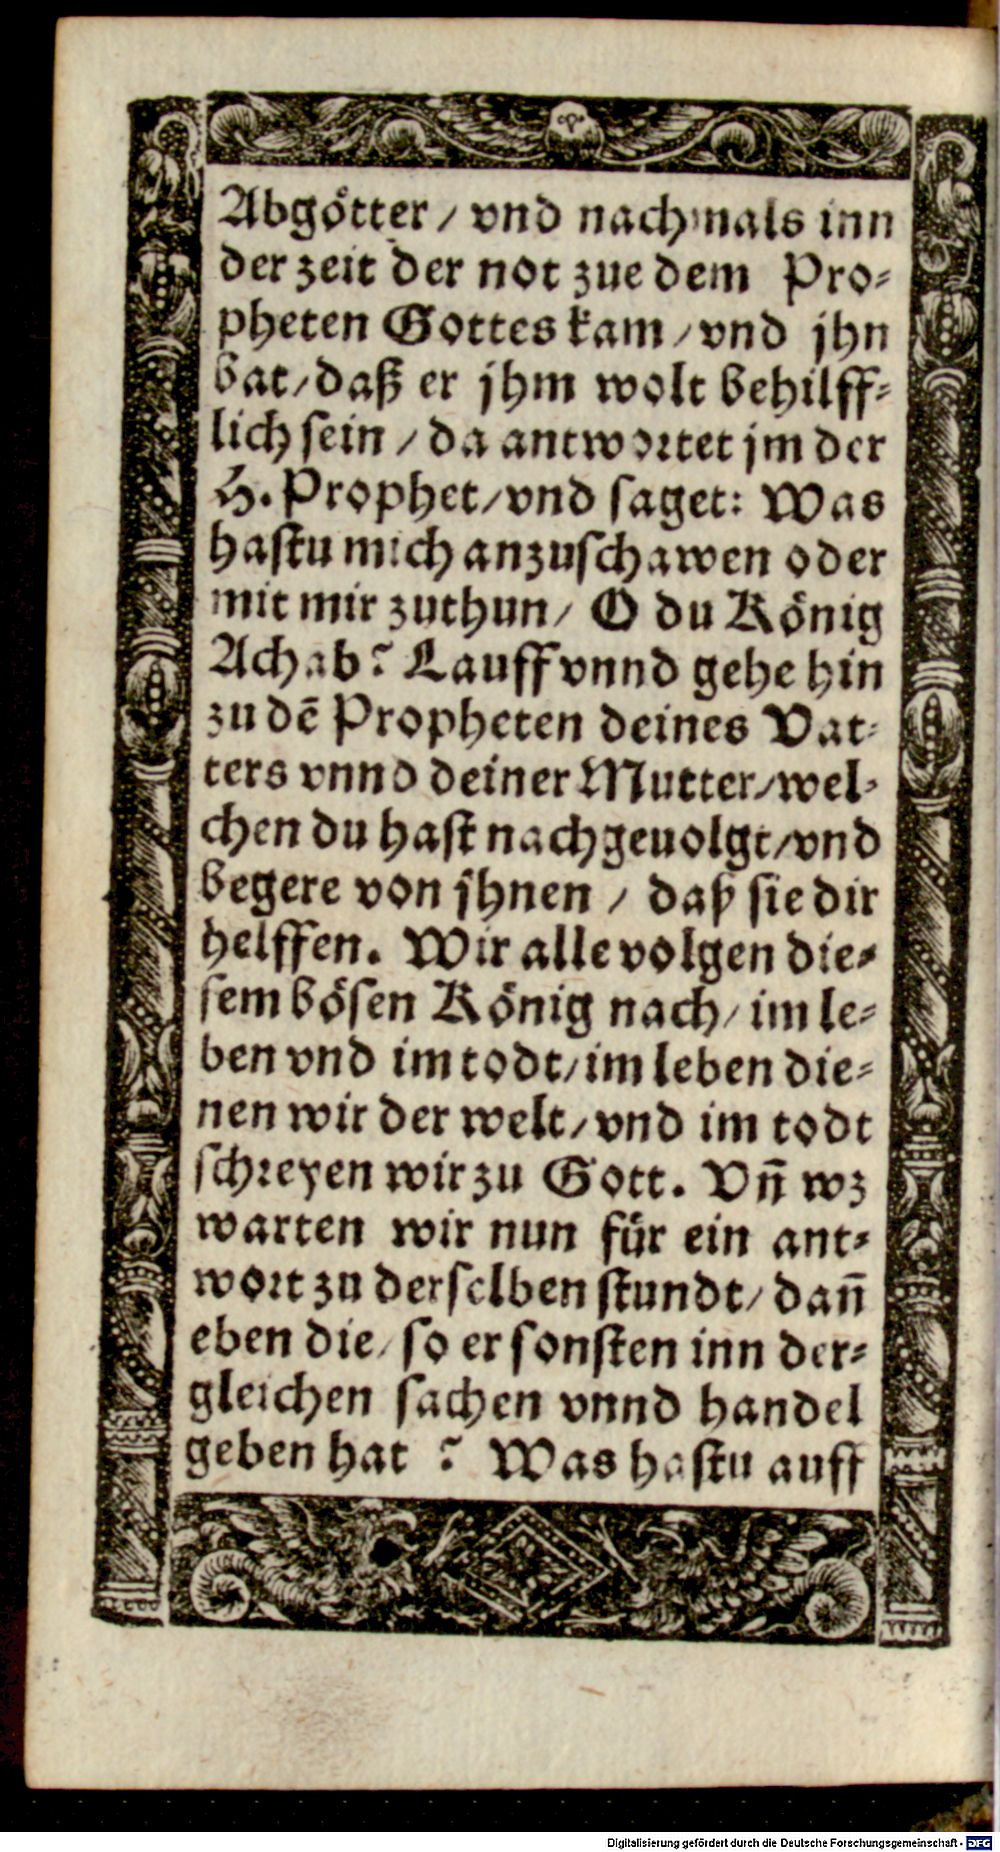 Abgötter / vnd nachmals inn
der zeit der not zue dem Pro-
pheten Gottes kam / vnd jhn
bat / daß er jhm wolt behilff-
lich sein / da antwortet jm der
H. Prophet / vnd saget: Was
hastu mich anzuschawen oder
mit mir zuthun / O du König
Achab? Lauff vnnd gehe hin
zu dē Propheten deines Vat-
ters vnnd deiner Mutter / wel-
chen du hast nachgeuolgt / vnd
begere von jhnen / daß sie dir
helffen. Wir alle volgen die-
sem bösen König nach / im le-
ben vnd im todt / im leben die-
nen wir der welt / vnd im todt
schreyen wir zu Gott. Vn̄ wz
warten wir nun für ein ant-
wort zu derselben stundt / dan̄
eben die / so er sonsten inn der-
gleichen sachen vnnd handel
geben hat ? Was hastu auff
Digitalisierung gefördert durch die Deutsche Forschungsgemeinschaft - DFG